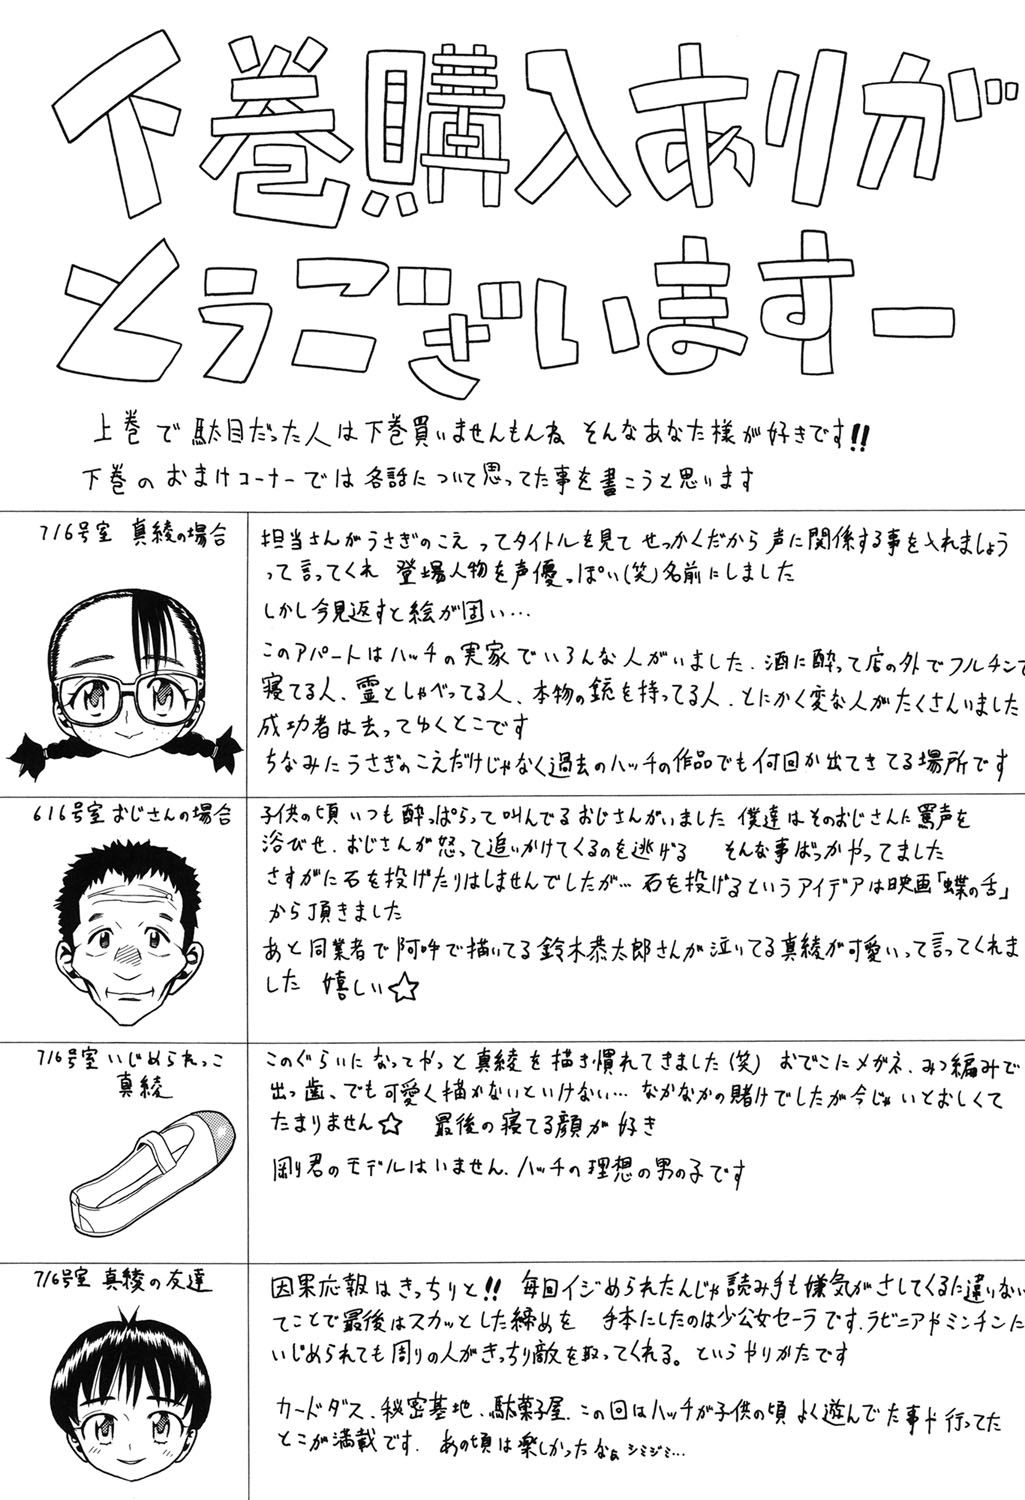 下巻購入ありが
とうございますー
上巻で駄目だった人は下巻買いませんもんね そんなあなた様が好きです!!
下巻のおまけコーナーでは各話について思ってた事を書こうと思います
716号室 真綾の場合
担当さんがうさぎのこえ ってタイトルを見て せっかくだから声に関係する事を入れましょう
って言ってくれ 登場人物を声優っぽい(笑)名前にしました
しかし今見返すと絵が固い…
このアパートはハッチの実家でいろんな人がいました、酒に酔って店の外でフルチンで
寝てる人、霊としゃべってる人、本物の銃を持ってる人、とにかく変な人がたくさんいました
成功者は去ってゆくとこです
ちなみにうさぎのこえだけじゃなく過去のハッチの作品でも何回か出てきてる場所です
616号室おじさんの場合
子供の頃いつも酔っぱらって叫んでるおじさんがいました 僕達はそのおじさんに罵声を
浴びせ、おじさんが怒って追いかけてくるのを逃げる そんな事ばっかやってました
さすがに石を投げたりはしませんでしたが… 石を投げるというアイデアは映画「蝶の舌」
から頂きました
あと同業者で阿吽で描いてる鈴木恭太郎さんが泣いてる真綾が可愛いって言ってくれま
した 嬉しい☆
716号室 いじめられっこ
真綾
このぐらいになってやっと真綾を描き慣れてきました(笑) おでこにメガネ、みつ編みで
出っ歯、でも可愛く描かないといけない… なかなかの賭けでしたが今じゃいとおしくて
たまりません☆ 最後の寝てる顔が好き
剛り君のモデルはいません、ハッチの理想の男の子です
716号室 真綾の友達
因果応報はきっちりと!! 毎回イジめられたんじゃ読み手も嫌気がさしてくるに違いない
てことで最後はスカッとした締めを 手本にしたのは少公女セーラです、ラビニアやミンチンに
いじめられても周りの人がきっちり敵を取ってくれる。というやりかたです
カードダス、秘密基地、駄菓子屋、この回はハッチが子供の頃よく遊んでた事や行ってた
とこが満載です、あの頃は楽しかったなぁ シミジミ…